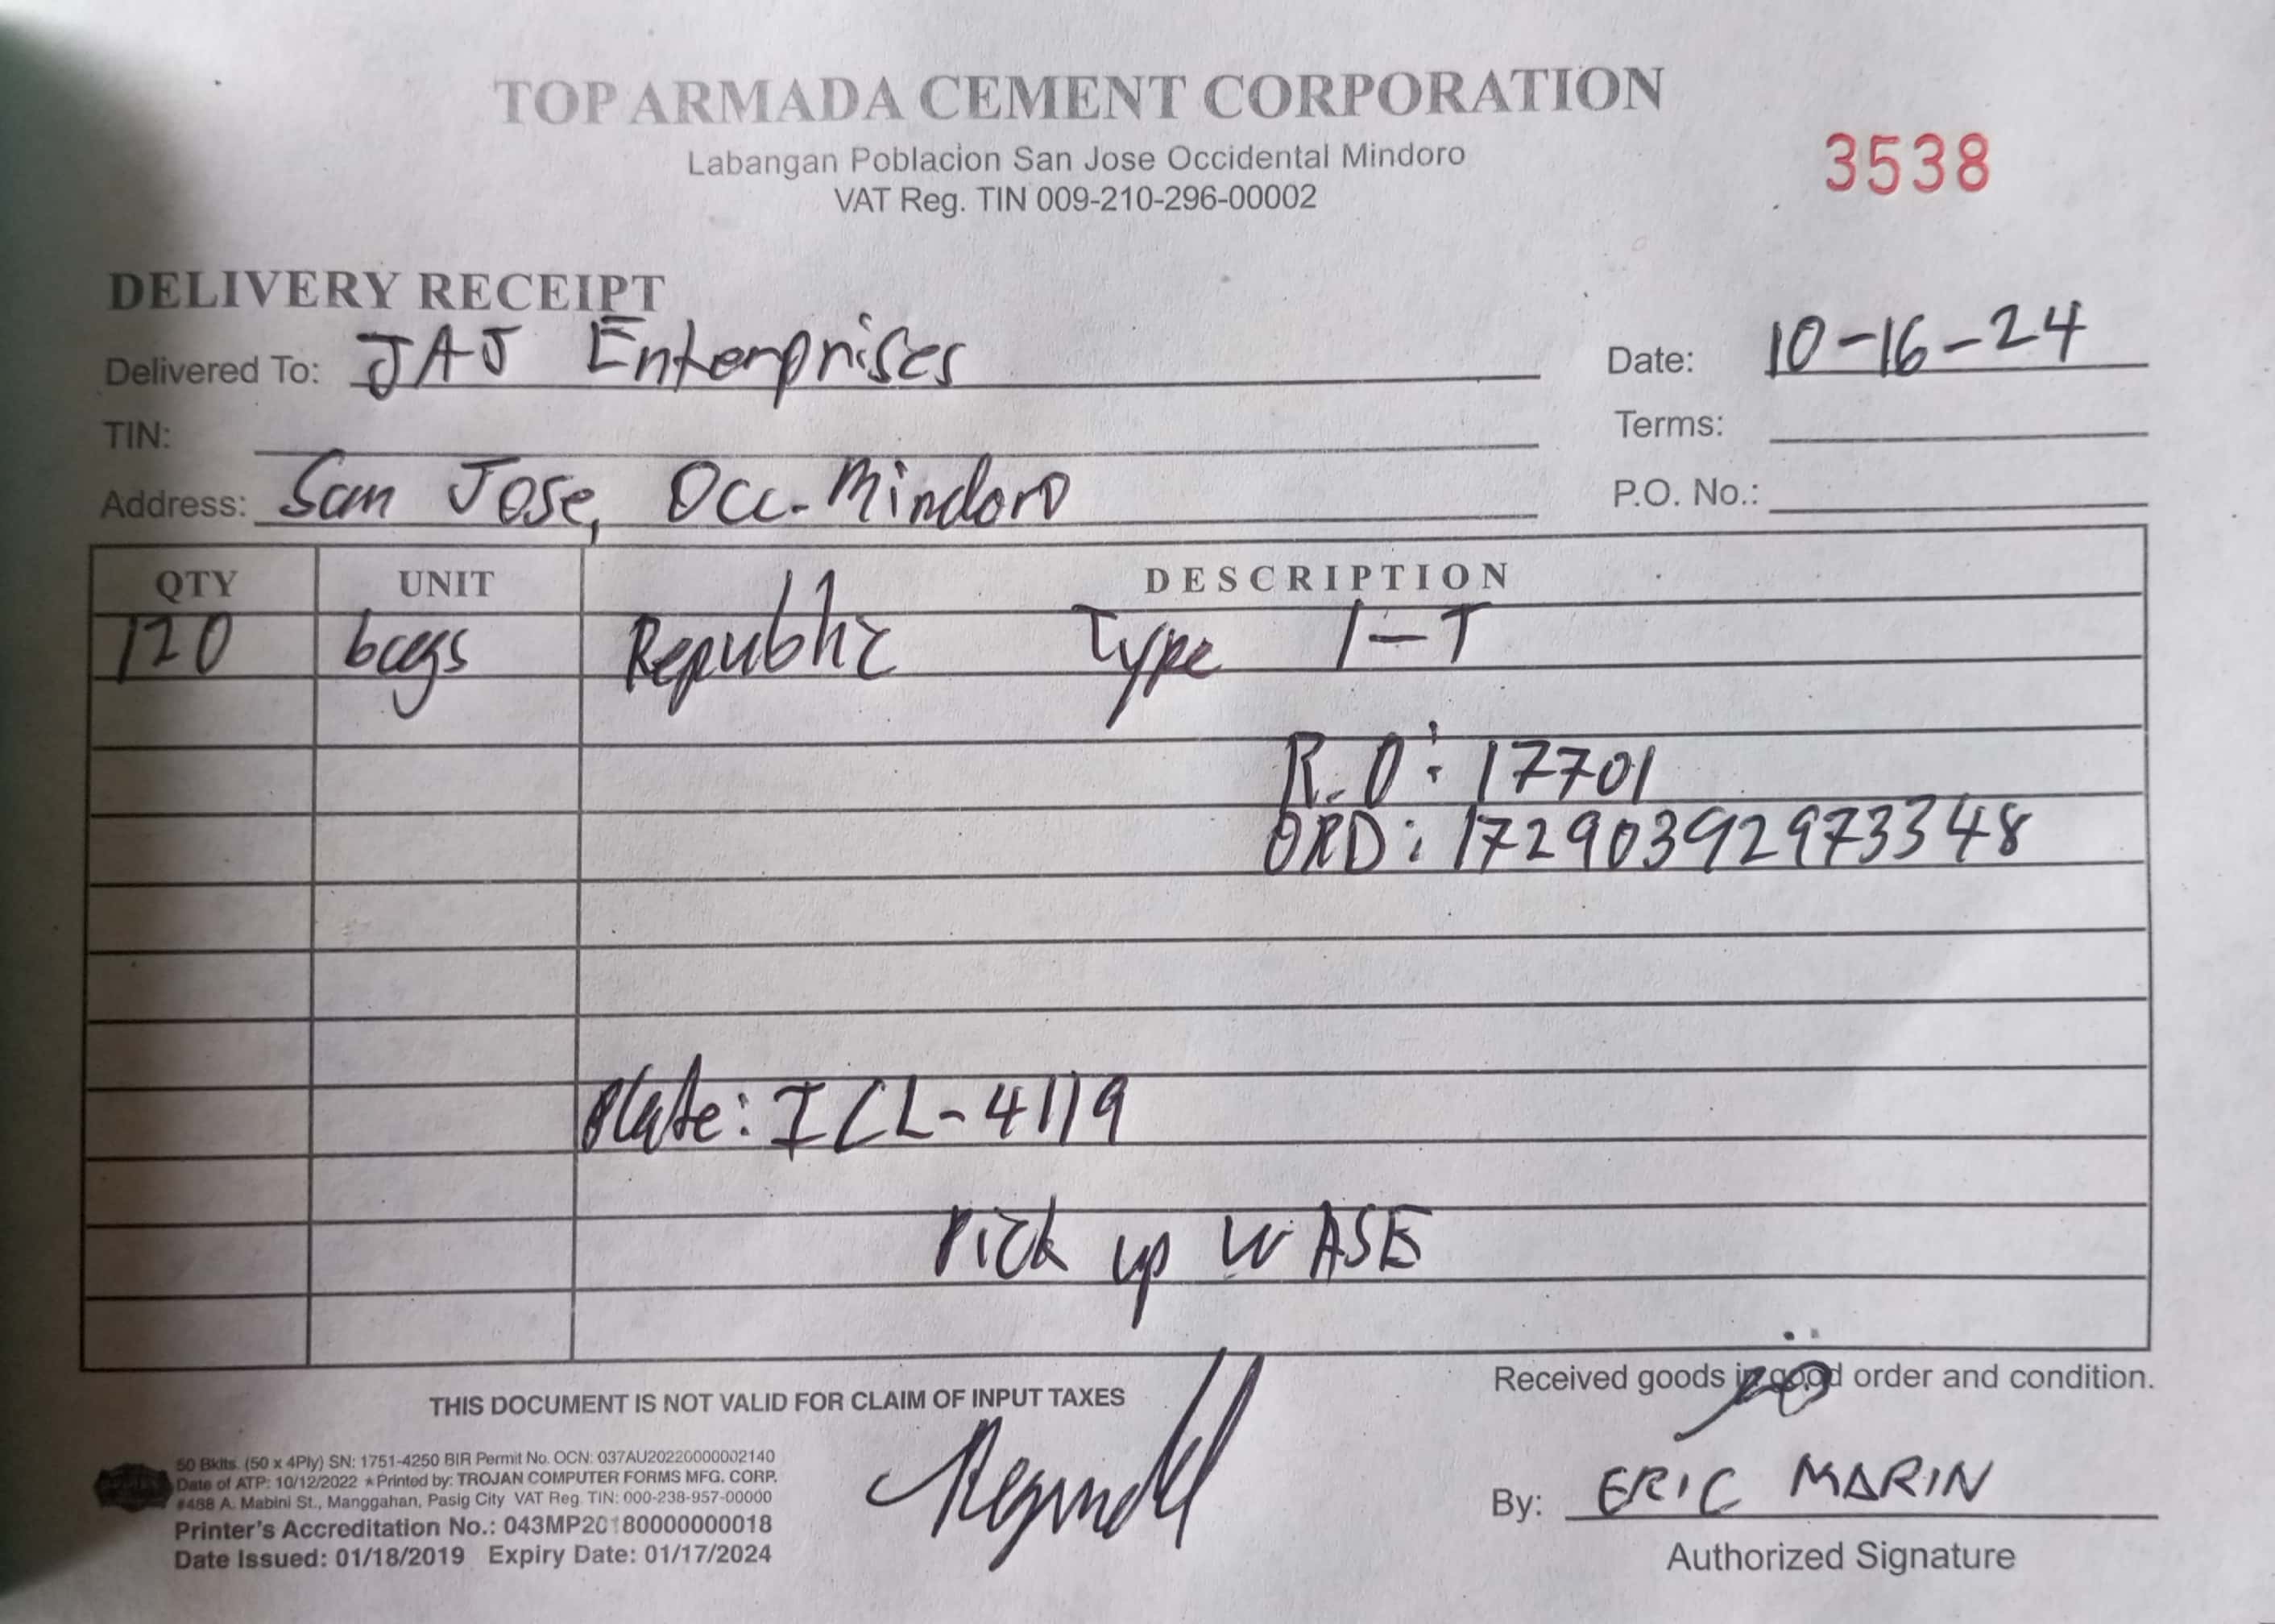 TOP ARMADA CEMENT CORPORATION
Labangan Poblacion San Jose Occidental Mindoro
3538
VAT Reg. TIN 009-210-296-00002
DELIVERY RECEIPT
Delivered To: JAJ Enterprises
Date: 10-16-24
TIN:
Terms:
Address: San Jose, Occ. Mindoro
P.O. No.:
QTY UNIT DESCRIPTION
120 bags Republic Type 1-T
R.O: 17701
ORD: 17290392973348
Plate: ICL-4119
Pick up W ASE
Received goods in good order and condition.
THIS DOCUMENT IS NOT VALID FOR CLAIM OF INPUT TAXES
50 Bklts. (50 x 4Ply) SN: 1751-4250 BIR Permit No. OCN: 037AU20220000002140
Date of ATP: 10/12/2022 * Printed by: TROJAN COMPUTER FORMS MFG. CORP.
#488 A. Mabini St., Manggahan, Pasig City VAT Reg. TIN: 000-238-957-00000
By: ERIC MARIN
Printer's Accreditation No.: 043MP20180000000018
Date Issued: 01/18/2019 Expiry Date: 01/17/2024
Authorized Signature